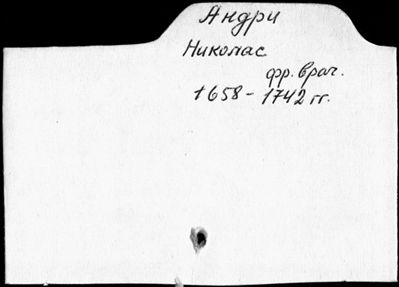 Андри
Николас
фр. врач.
1658-1742 гг.